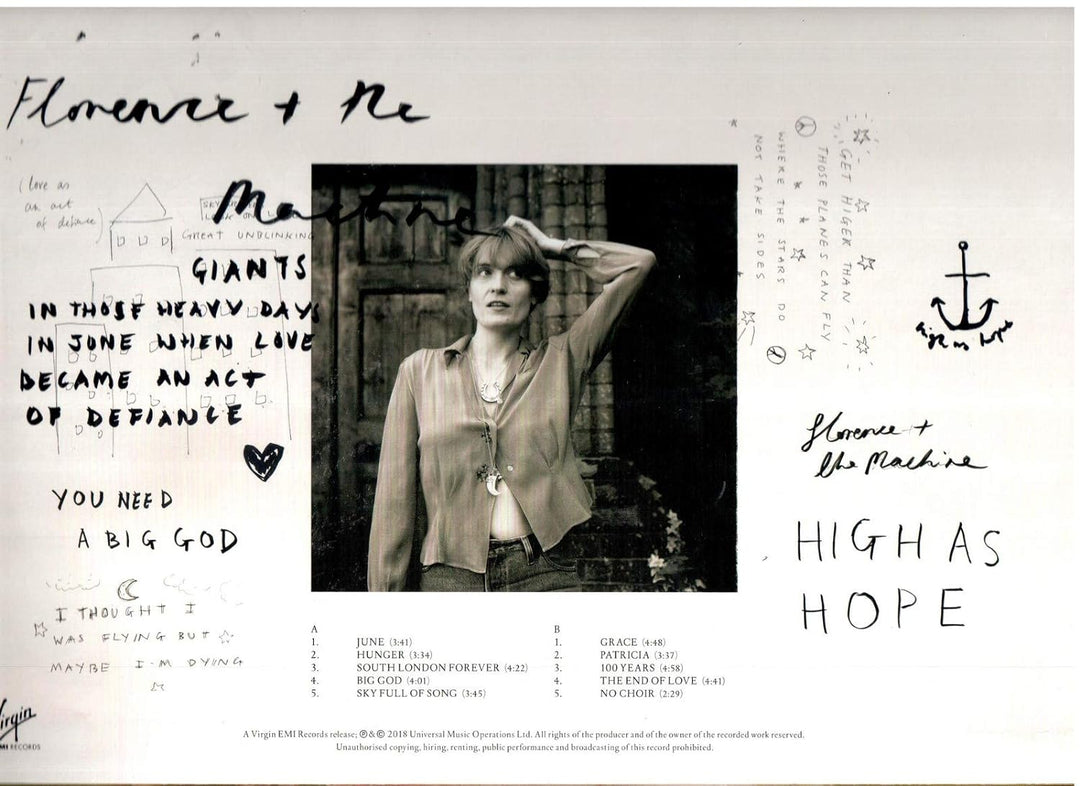 Florence + the
Machine
(love as
an act
of defiance)
GREAT UNBLINKING
GIANTS
IN THOSE HEAVY DAYS
IN JUNE WHEN LOVE
BECAME AN ACT
OF DEFIANCE
YOU NEED
A BIG GOD
I THOUGHT I
WAS FLYING BUT
MAYBE I'M DYING
GET HIGER THAN
THOSE PLANES CAN FLY
WHERE THE STARS DO
NOT TAKE SIDES
High as hope
Florence +
the Machine
HIGH AS
HOPE
A
1. JUNE (3:41)
2. HUNGER (3:34)
3. SOUTH LONDON FOREVER (4:22)
4. BIG GOD (4:01)
5. SKY FULL OF SONG (3:45)
B
1. GRACE (4:48)
2. PATRICIA (3:37)
3. 100 YEARS (4:58)
4. THE END OF LOVE (4:41)
5. NO CHOIR (2:29)
Virgin
EMI RECORDS
A Virgin EMI Records release; ℗&© 2018 Universal Music Operations Ltd. All rights of the producer and of the owner of the recorded work reserved.
Unauthorised copying, hiring, renting, public performance and broadcasting of this record prohibited.